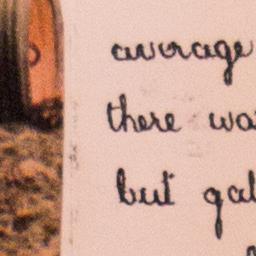 average
there wa
but gal